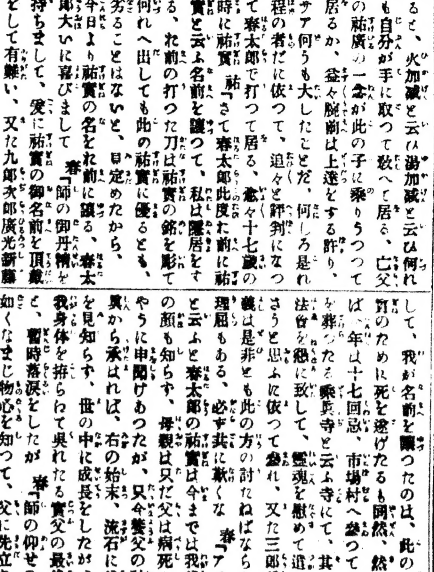 ると、火加減と云ひ湯加減と云ひ何れ
も自分が手に取つて教へて居る、亡父
の祐廣の一念が此の子に乘りうつつて
居るか、益々腕前は上達をする許り、
サア何うも大したことだ、何しろ是れ
程の者だに依つて、追々と評判になつ
て春太郎で打つて居る、愈々十七歳の
時に祐實 祐『さて春太郎此度れ前に祐
實と云ふ名前を讓つて、私は隱居をす
る、れ前の打つた刀は祐實の銘を彫て
何れへ出しても此の祐實に優るとも、
劣ることはないと、見定めたから、
今日より祐實の名をれ前に讓る、春太
郎大いに喜びまして 春『師の御丹精を
持ちまして、爰に祐實の御名前を頂戴
をして有難い、又た九郎次郎廣光新藤
して、我が名前を讓つたのは、此の
實のために死を遂げたるも同然、然
ば今年は十七回忌、市場村へ參つて
を葬つたる乘眞寺と云ふ寺にて、其
法會を懇に致して、靈魂を慰めて遣
さうと思ふに依つて參れ、又た三郎
義は是非とも此の方の討たねばなら
理屈もある、必ず共に歎くな 春『ア
と云ふと春太郎の祐實は今までは我
の顏も知らず、母親は只だ父は病死
やうに申聞けあつたが、只今養父の
實から承はれば、右の始末、流石に
を見知らず、世の中に成長をしたが
我身体を拵らわて呉れたる實父の最
と、暫時落淚をしたが 春『師の仰せ
如くなまじ物心を知つて、父に先立